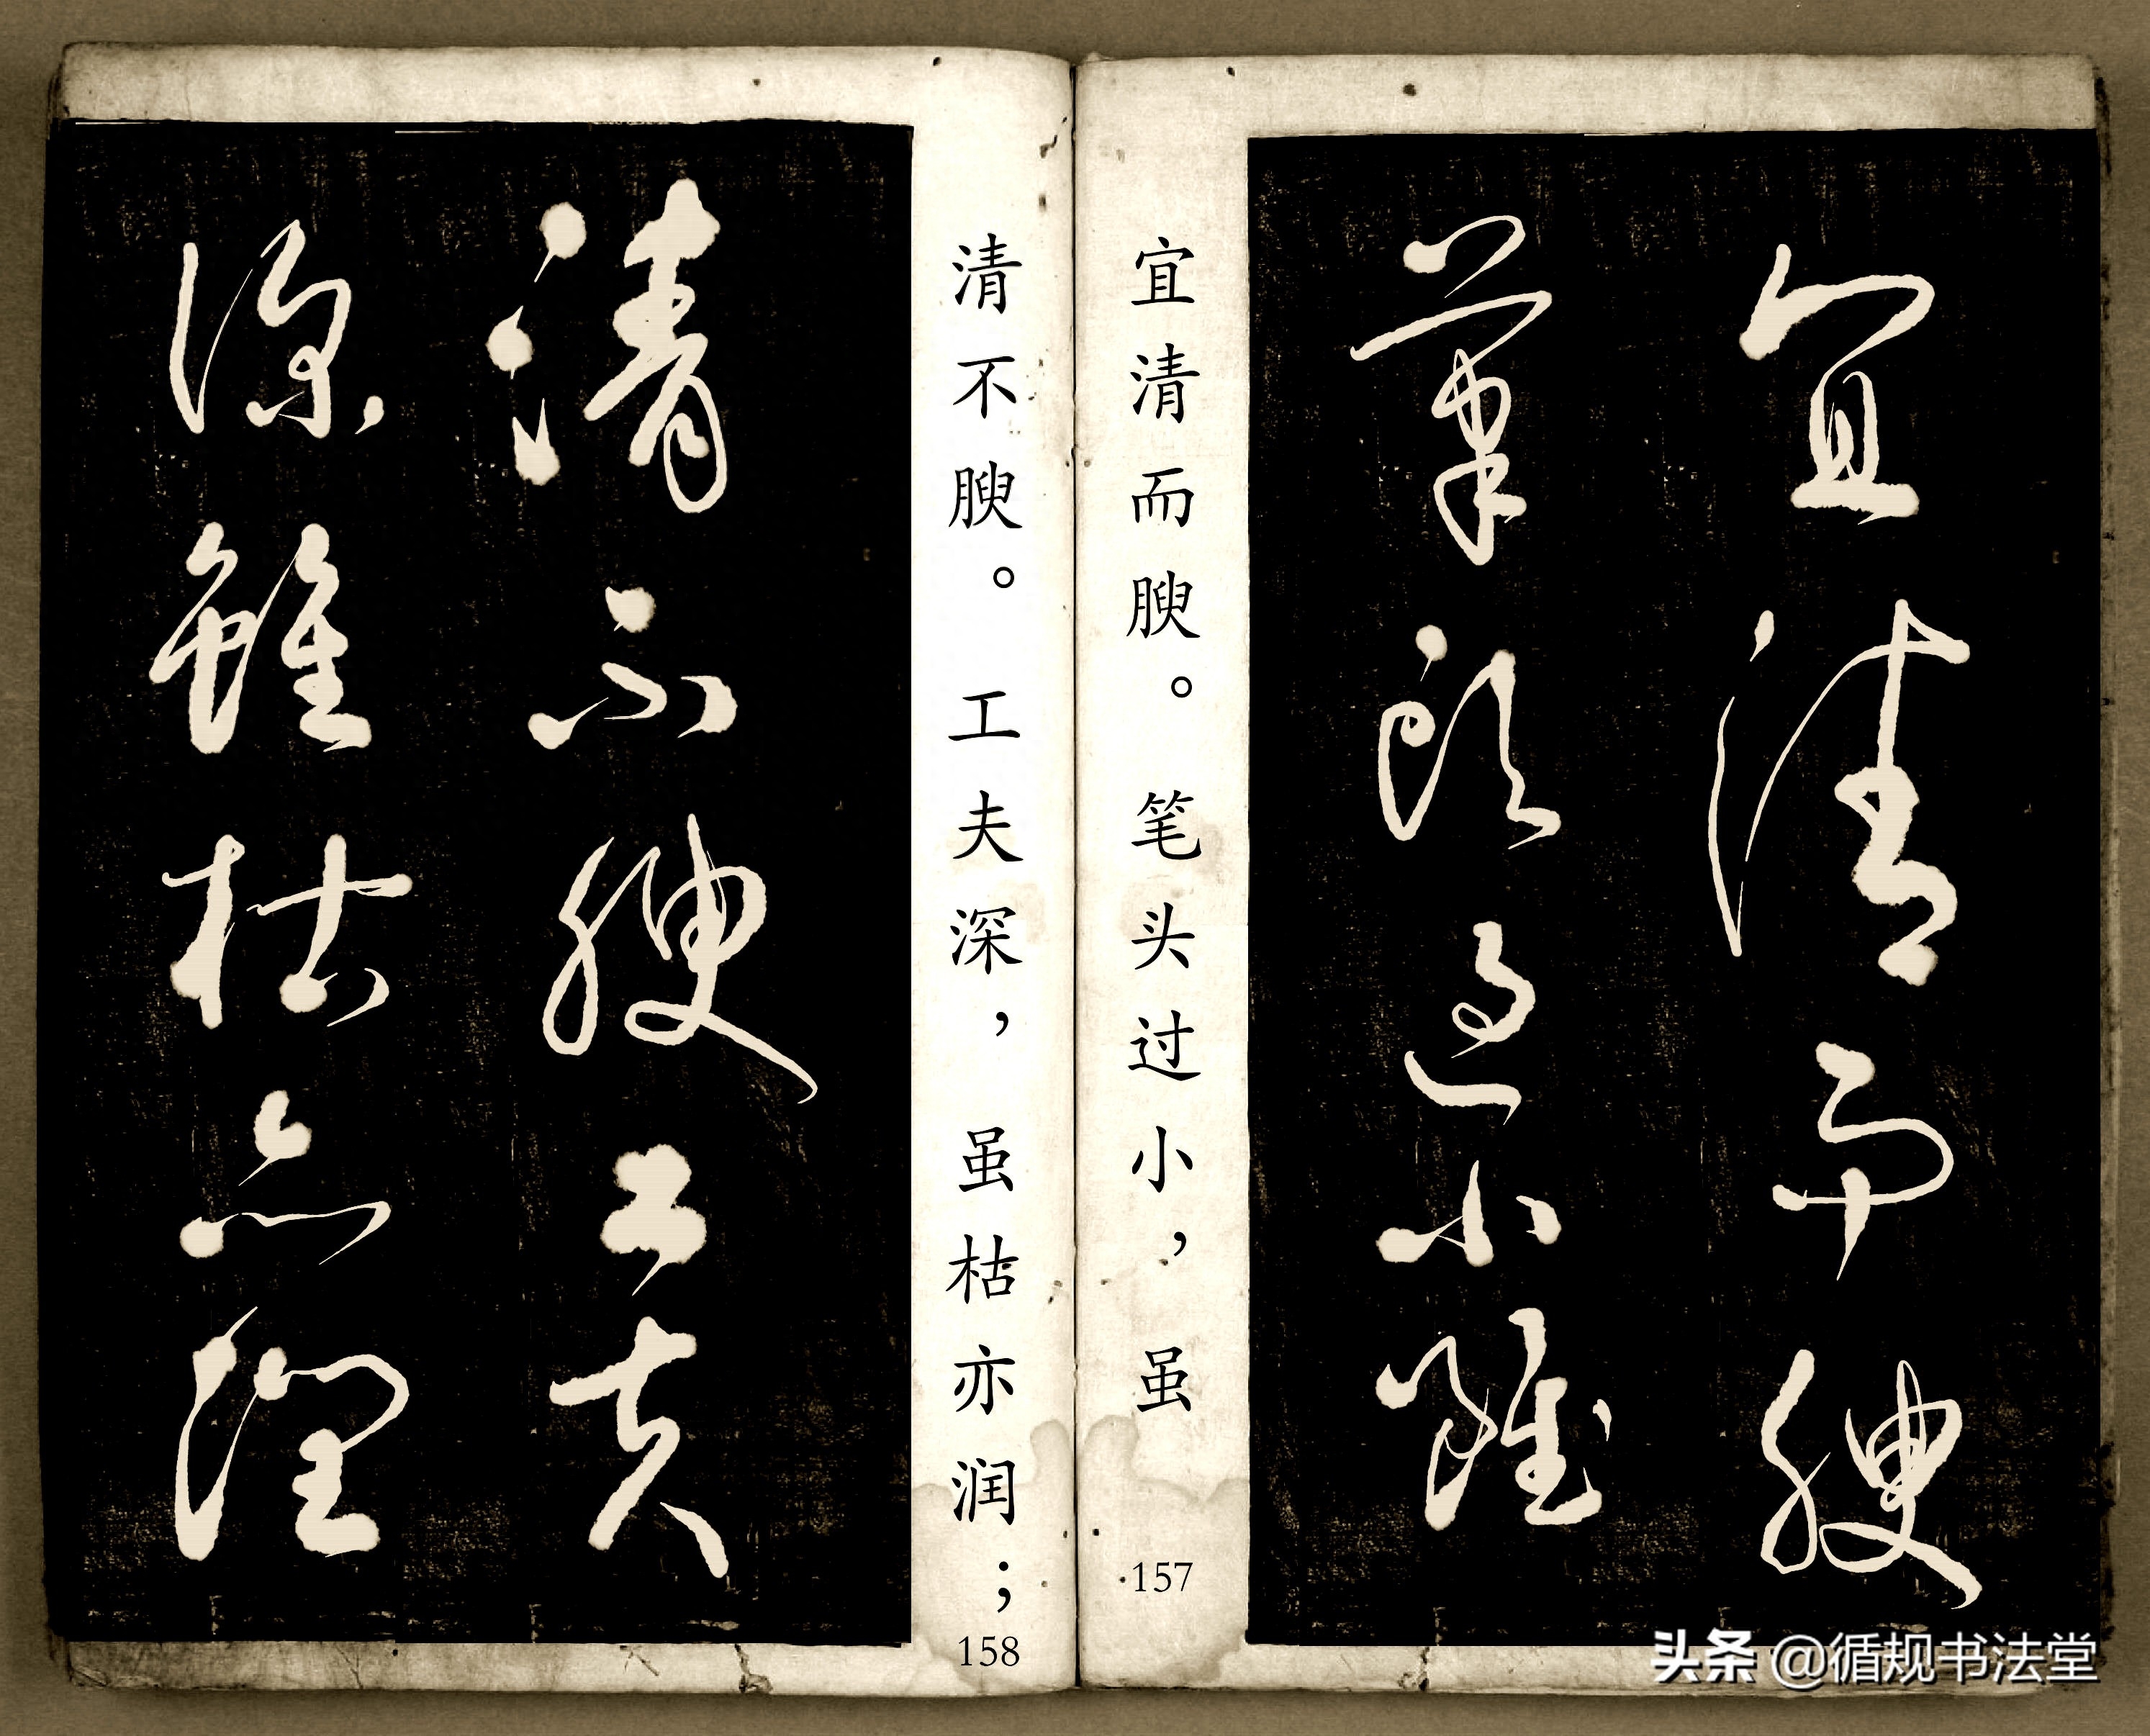 宜清而腴
筆头过小雖
宜清而腴。笔头过小，虽
157
清不腴。工夫深，虽枯亦润；
158
清不腴工夫
深雖枯亦润
头条 @循规书法堂